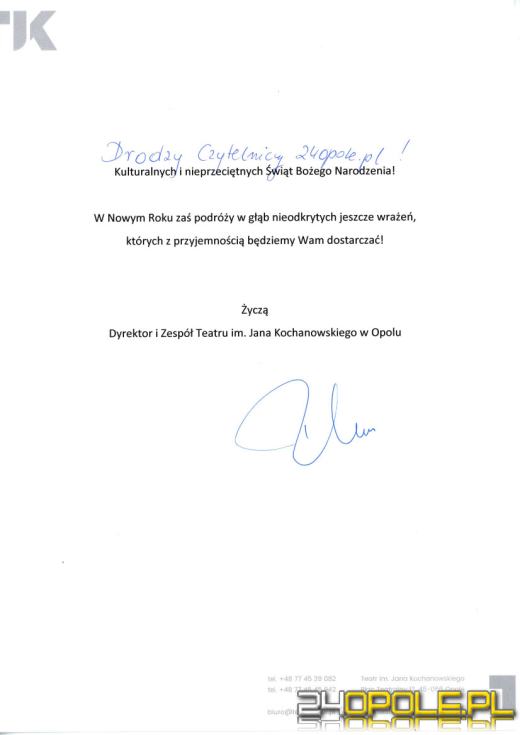 TK
Drodzy Czytelnicy 24opole.pl !
Kulturalnych i nieprzeciętnych Świąt Bożego Narodzenia!
W Nowym Roku zaś podróży w głąb nieodkrytych jeszcze wrażeń,
których z przyjemnością będziemy Wam dostarczać!
Życzą
Dyrektor i Zespół Teatru im. Jana Kochanowskiego w Opolu
tel. +48 77 45 39 082 Teatr im. Jana Kochanowskiego
tel. +48 77
24OPOLE.PL